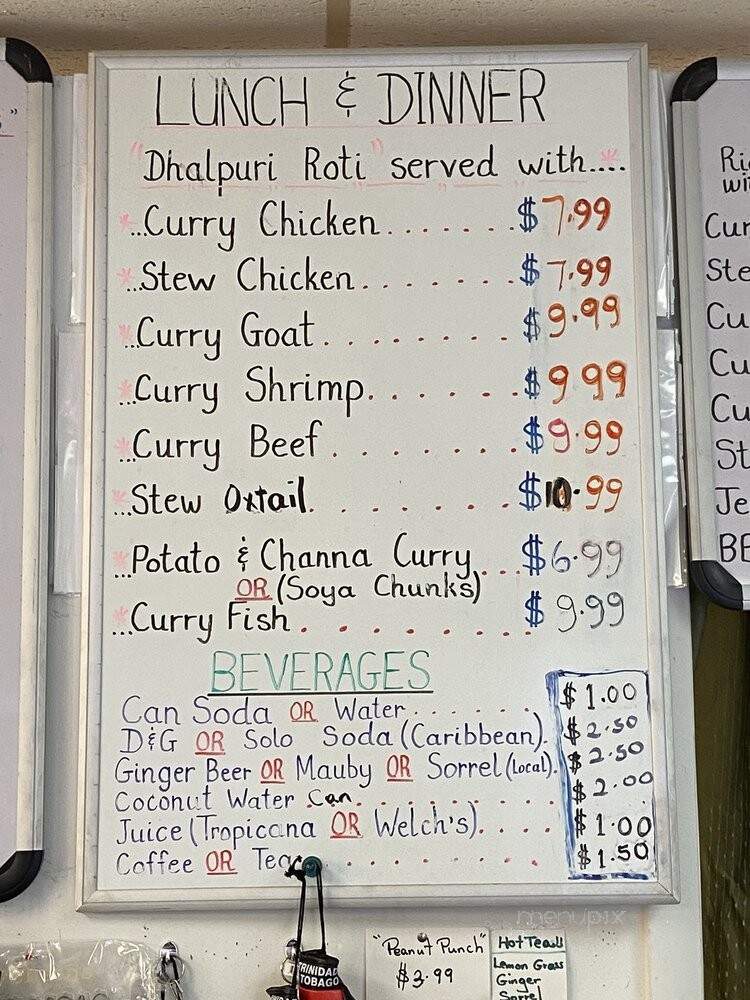 LUNCH & DINNER
"Dhalpuri Roti" served with....
...Curry Chicken.......$7.99
...Stew Chicken.......$7.99
...Curry Goat.......$9.99
...Curry Shrimp......$9.99
...Curry Beef.......$9.99
...Stew Oxtail.......$10.99
...Potato & Channa Curry...$6.99
OR (Soya Chunks)
...Curry Fish.......$9.99
BEVERAGES
Can Soda OR Water...... $1.00
D&G OR Solo Soda (Caribbean). $2.50
Ginger Beer OR Mauby OR Sorrel (Local). $2.50
Coconut Water Can......... $2.00
Juice (Tropicana OR Welch's).... $1.00
Coffee OR Tea....... $1.50
TRINIDAD
TOBAGO
"Peanut Punch"
$3.99
Hot Teas
Lemon Grass
Ginger
Sorrel
Ri
wi
Cur
Ste
Cu
Cu
Cu
St
Je
BE
menupix